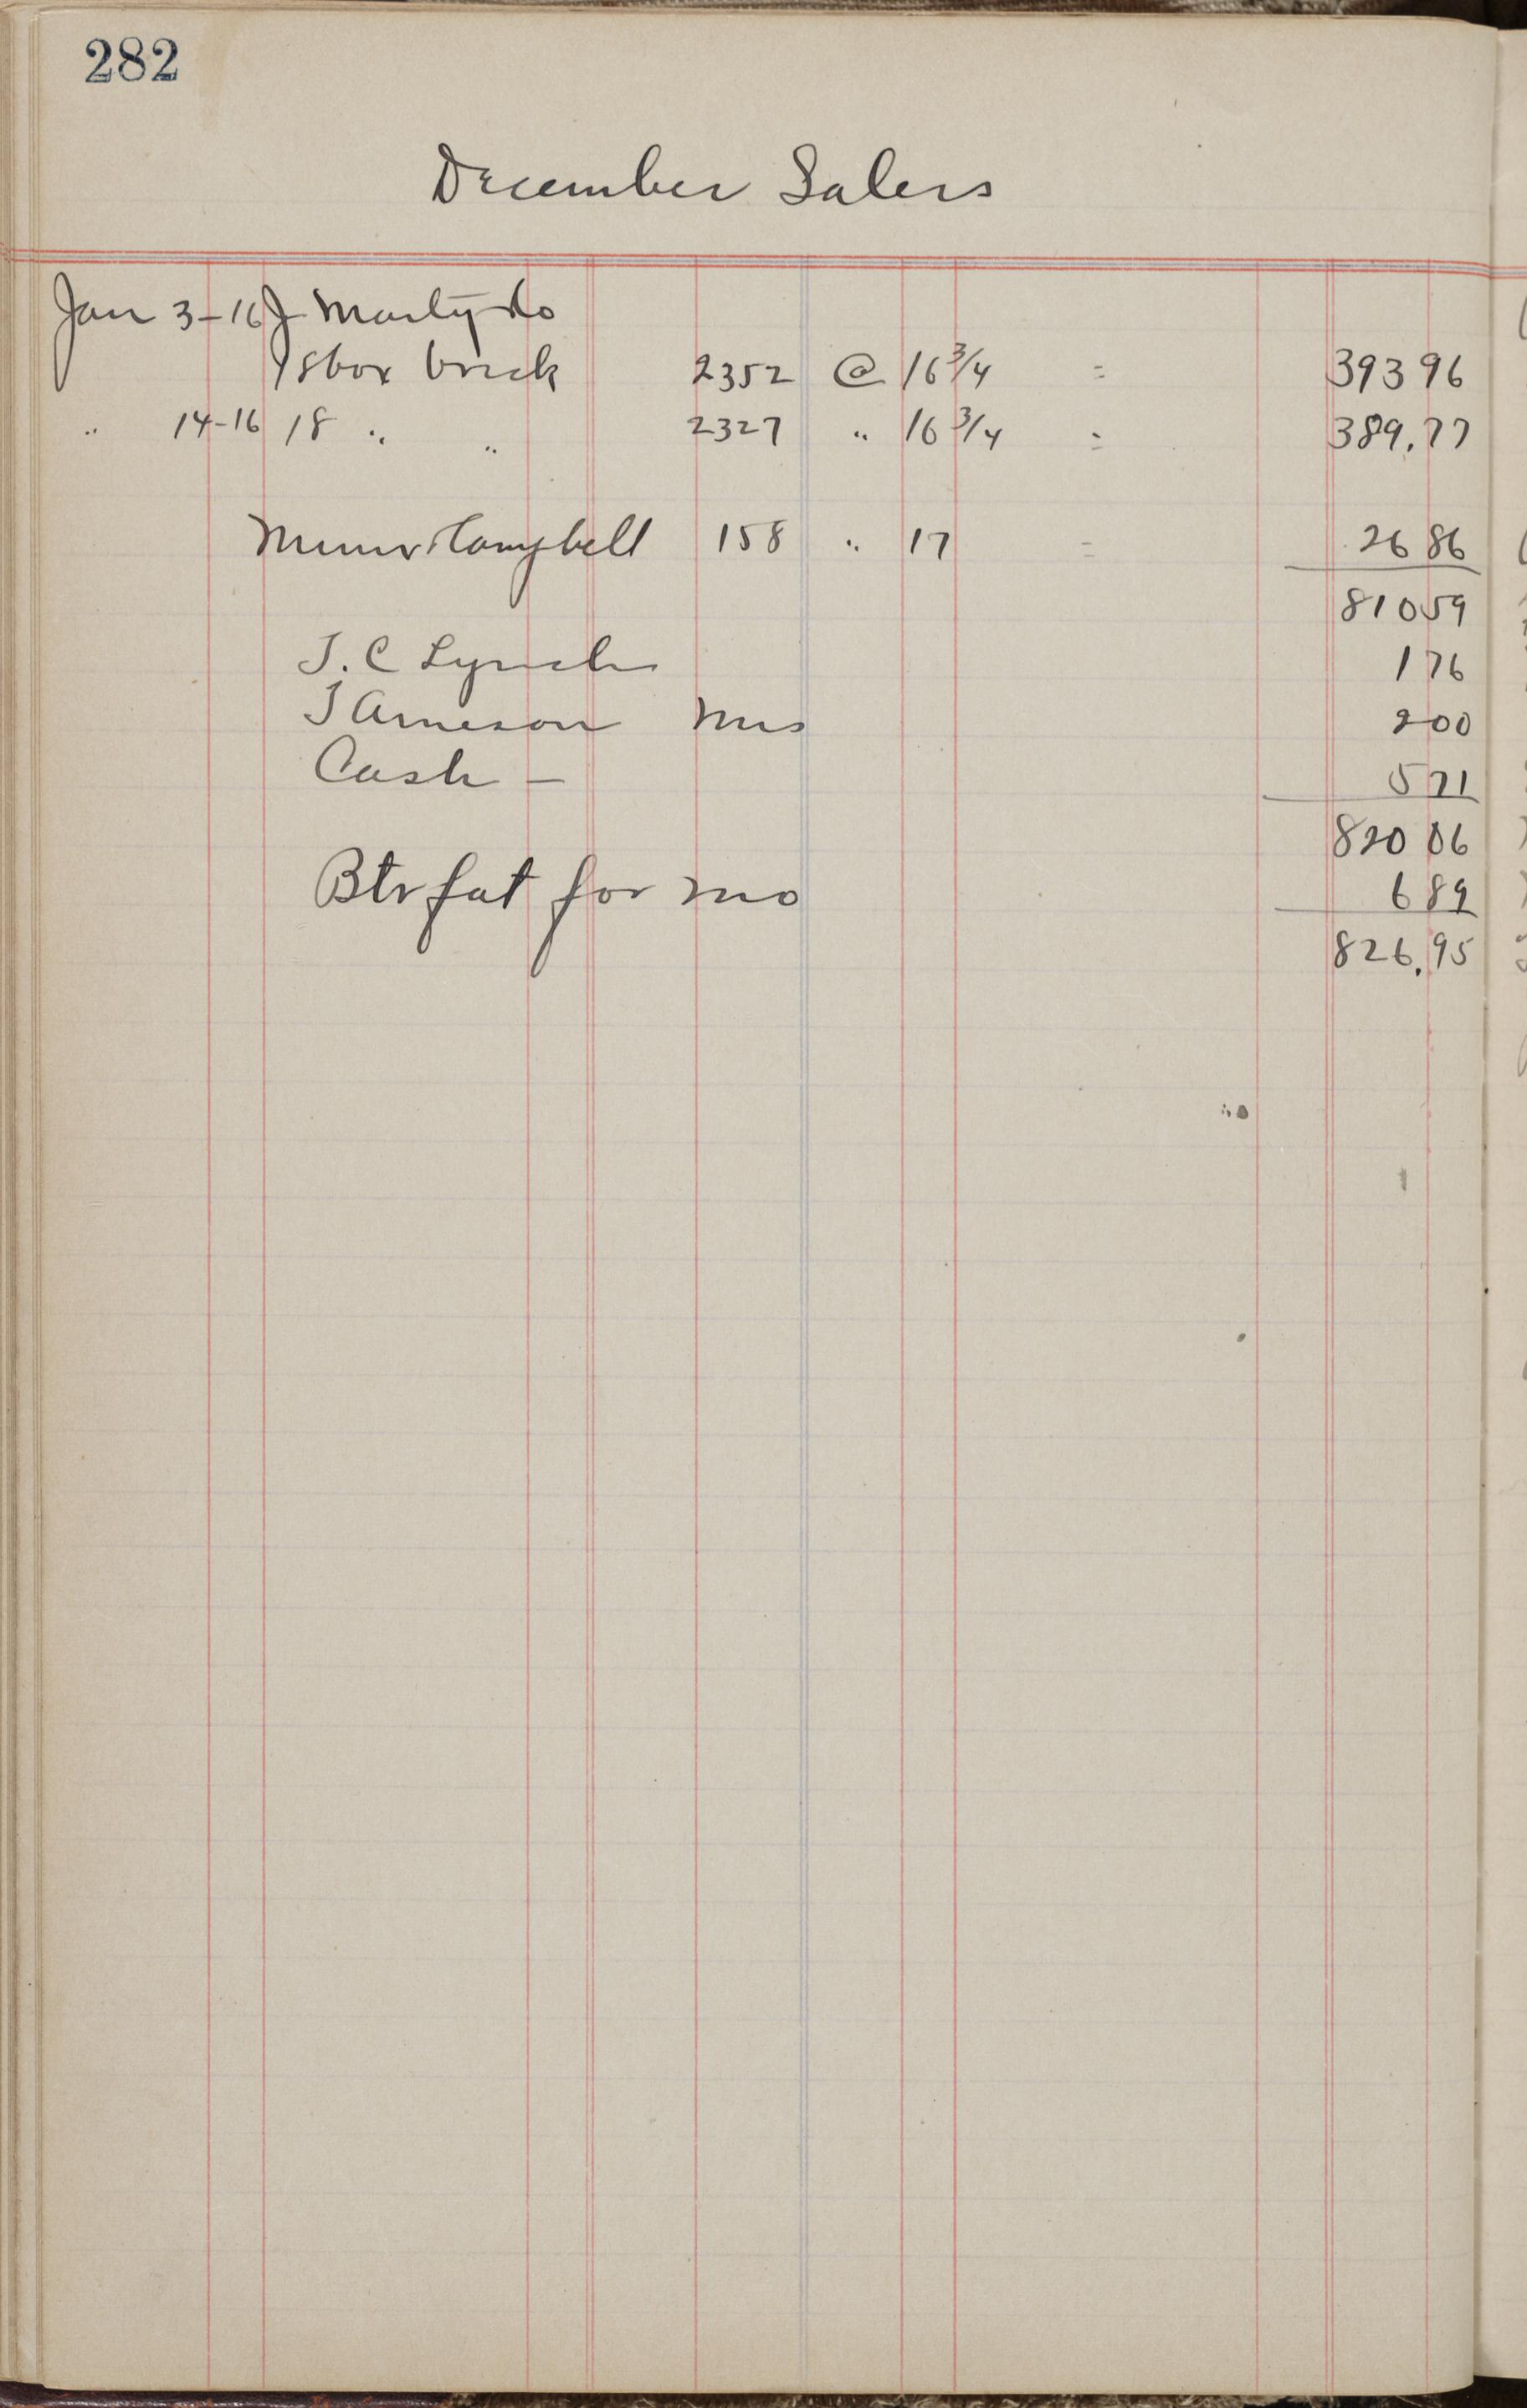 282
December Salers
Jan 3-16 J Marty Co
18 box brick 2352 @ 16 3/4 = 393 96
" 14-16 18 " " 2327 " 16 3/4 = 389.77
Campbell 158 " 17 = 26 86
810 59
J. C Lynch 1 76
J Arneson 2 00
Cash - 5 71
820 06
Btr fat for mo 6 89
826.95